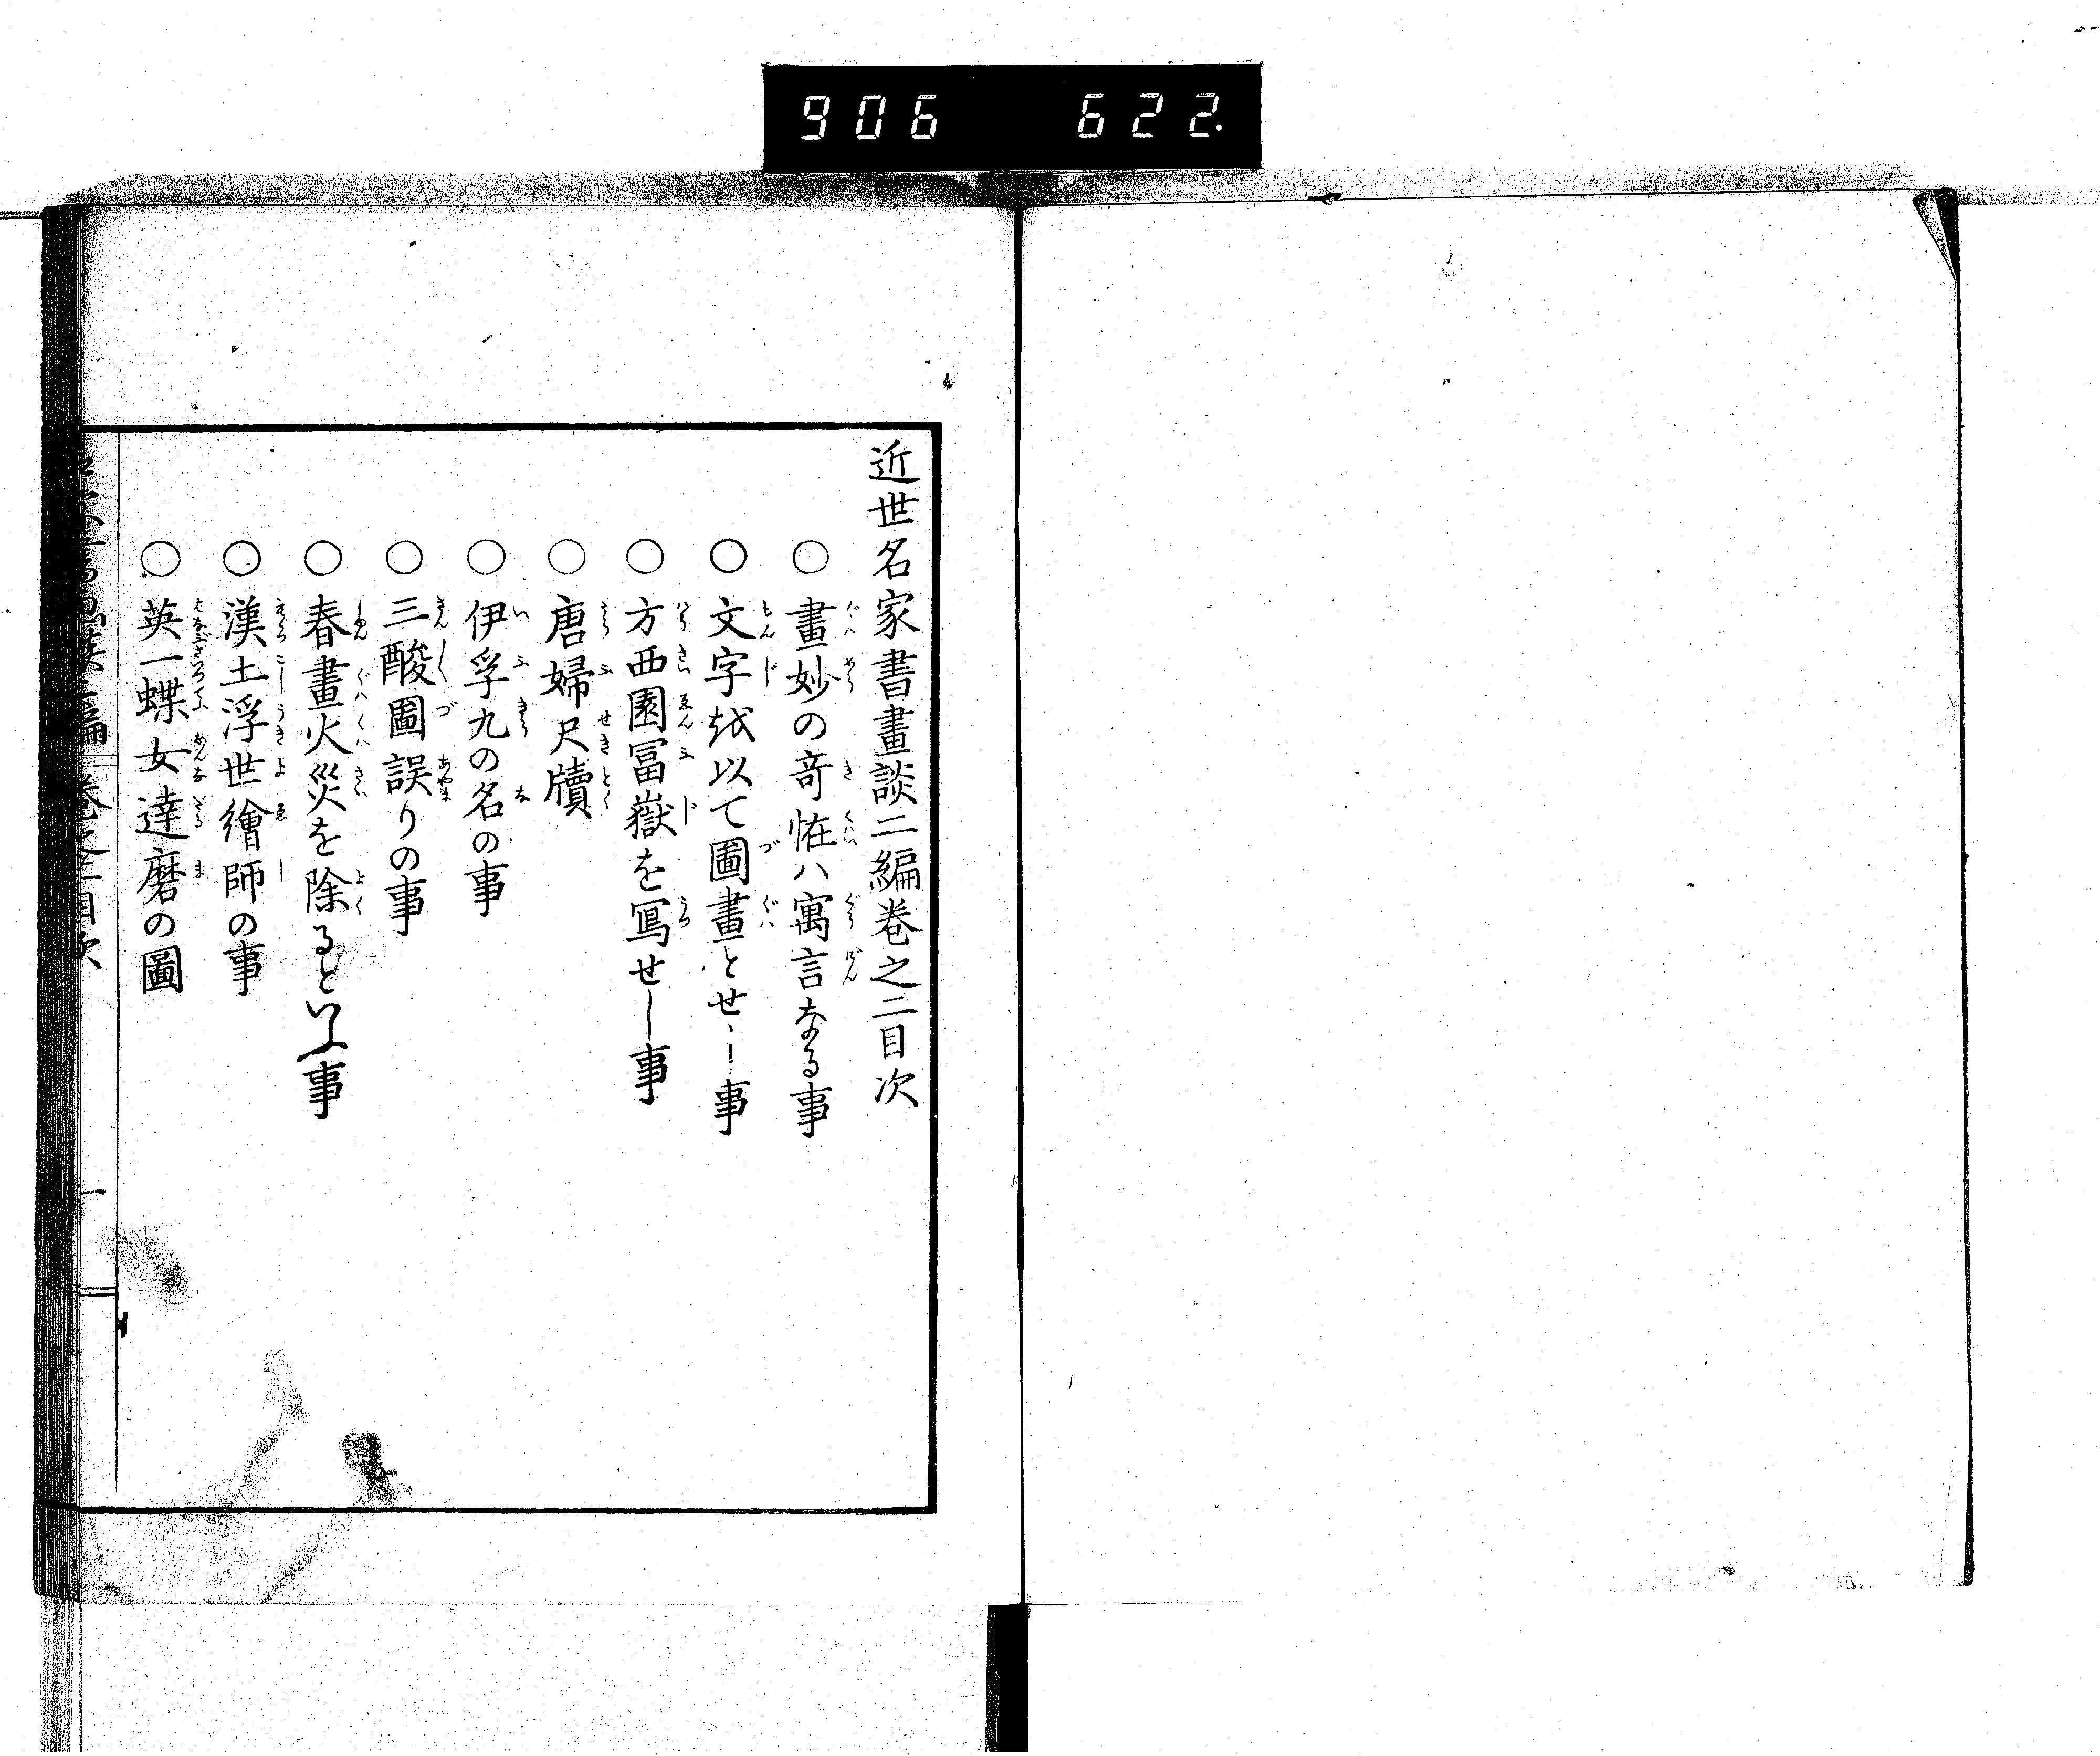 906 622.
近世名家書畫談二編卷之二目次
○畫妙の奇恠ハ寓言なる事
○文字を以て圖畫とせし事
○方西園冨嶽を寫せし事
○唐婦尺牘
○伊孚九の名の事
○三酸圖誤りの事
○春畫火災を除るといふ事
○漢土浮世繪師の事
○英一蝶女達磨の圖